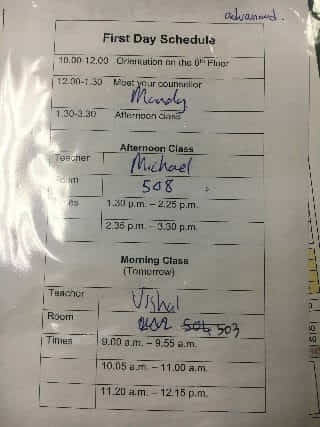 advanced.
First Day Schedule
10.00-12.00 Orientation on the 6th Floor
12.00-1.30 Meet your counsellor
Mandy
1.30-3.30 Afternoon class
Afternoon Class
Teacher Michael
Room 508
Times 1.30 p.m. – 2.25 p.m.
2.35 p.m. – 3.30 p.m.
Morning Class
(Tomorrow)
Teacher Vishal
Room 503
Times 9.00 a.m. – 9.55 a.m.
10.05 a.m. – 11.00 a.m.
11.20 a.m. – 12.15 p.m.